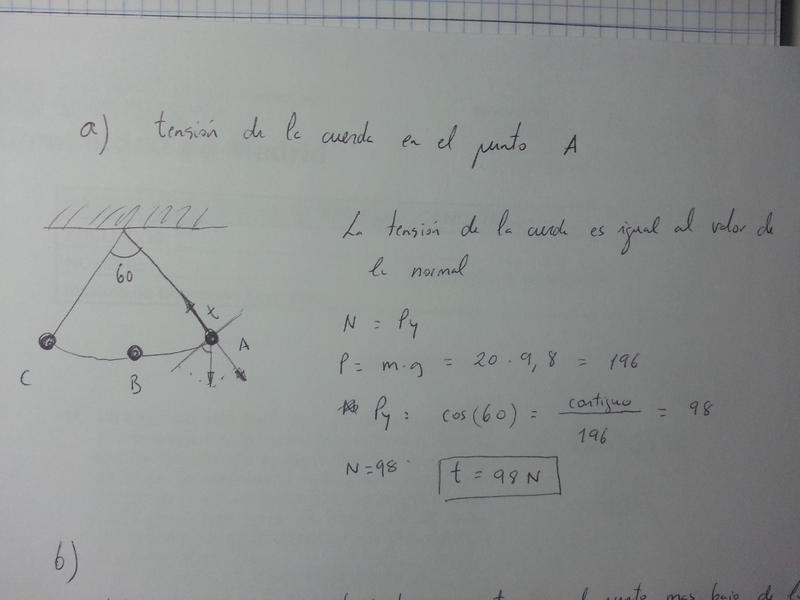 a) tensión de la cuerda en el punto A
60
x
A
B
C
La tensión de la cuerda es igual al valor de
la normal
N = Py
P = m·g = 20 · 9,8 = 196
Py : cos(60) = contiguo / 196 = 98
N = 98
t = 98 N
b)
punto mas bajo de l